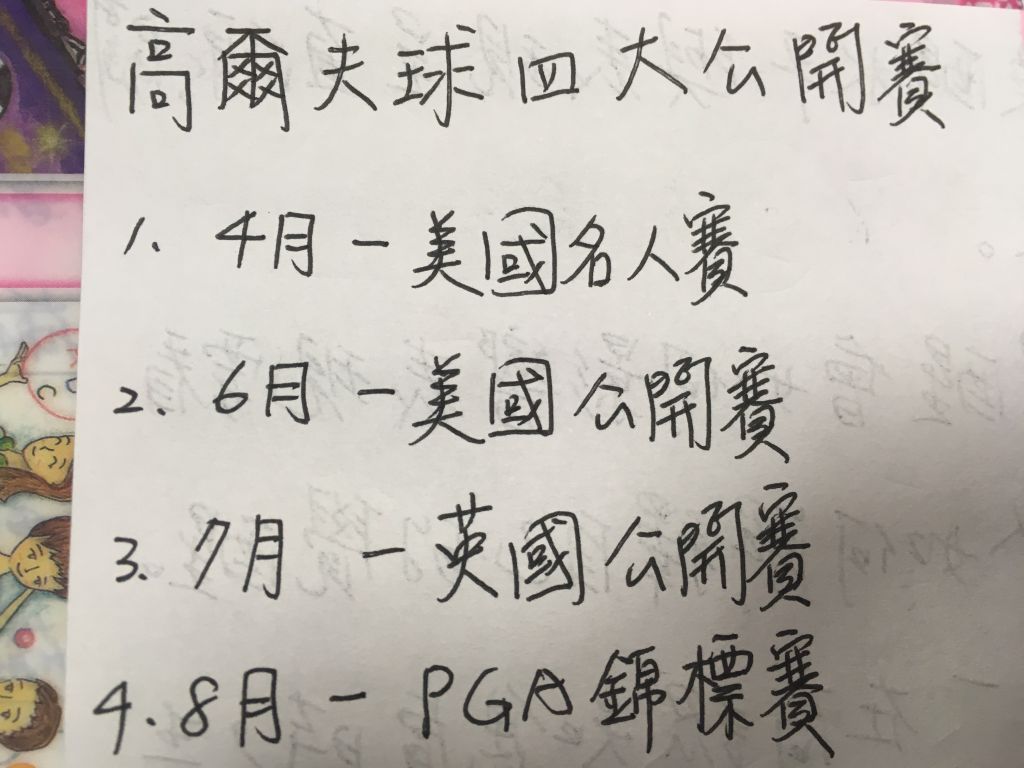 高爾夫球四大公開賽
1. 4月-美國名人賽
2. 6月-美國公開賽
3. 7月-英國公開賽
4. 8月-PGA錦標賽